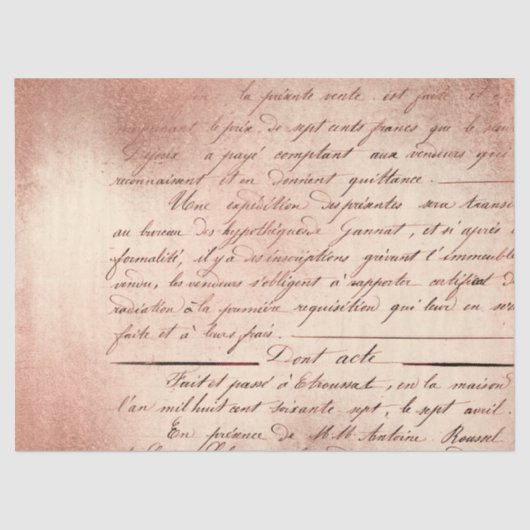 la présente vente est faite et
moyennant le prix de sept cents francs que le
Dejoux a payé comptant aux vendeurs qui
reconnaissent et en donnent quittance.
Une expédition des présentes sera trans
au bureau des hypothèques de Gannat, et si après
formalité, il y a des inscriptions grévant l'immeuble
vendu, les vendeurs s'obligent à rapporter certificat d
radiation à la première requisition qui leur en s
faite et à leurs frais.
Dont acte
Fait et passé à Etroussat, en la maison
l'an mil huit cent soixante sept, le sept avril.
En présence de M.M. Antoine Roussel